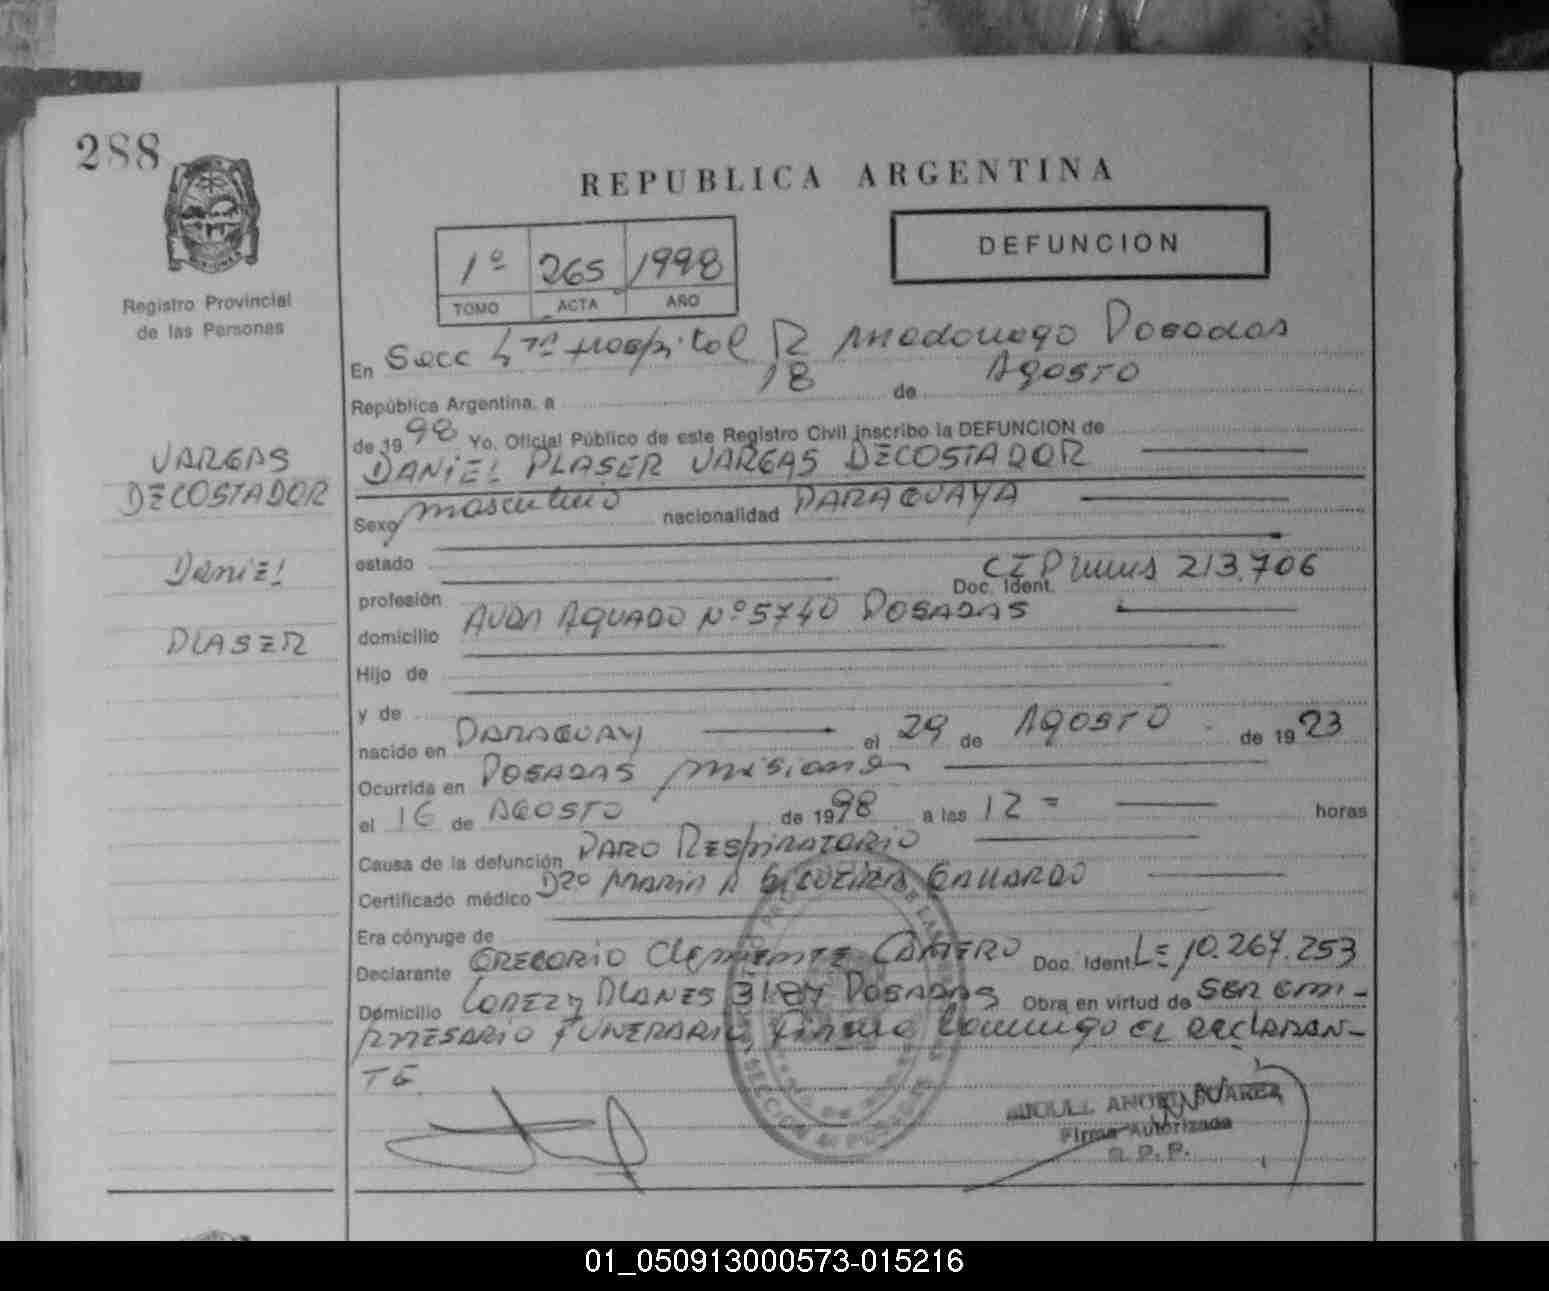 288
REPUBLICA ARGENTINA
DEFUNCION
1º 265 1998
TOMO ACTA AÑO
Registro Provincial
de las Personas
En Secc 4ta Hospital R Madariaga Posadas
República Argentina, a 18 de Agosto
de 1998 Yo, Oficial Público de este Registro Civil inscribo la DEFUNCION de
DANIEL PLASER VARGAS DECOSTADOR
VARGAS
DECOSTADOR
Daniel
PLASER
Sexo masculino nacionalidad PARAGUAYA
estado
profesión Doc. Ident. CIPMnes 213.706
domicilio AVDA AGUADO Nº 5740 POSADAS
Hijo de
y de
nacido en PARAGUAY el 29 de AGOSTO de 1923
Ocurrida en POSADAS misiones
el 16 de AGOSTO de 1998 a las 12 = horas
Causa de la defunción PARO RESPIRATORIO
Certificado médico DRA MARIA A GALLARDO
Era cónyuge de
Declarante GREGORIO CLEMENTE CANTERO Doc. Ident. LE 10.267.253
Domicilio LOPEZ y PLANES 3187 POSADAS Obra en virtud de SER EM-
PRESARIO FUNERARIO, Firma conmigo EL DECLARAN-
TE
SECCION 4ª POSADAS
MIGUEL ANGEL SUAREZ
Firma Autorizada
R. P. P.
01_050913000573-015216